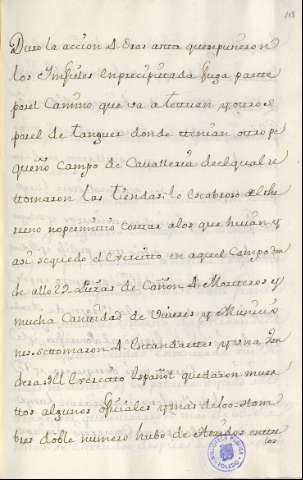 Duró la acción 4. oras asta que pusieron
los Ynfieles en precipitada fuga parte
por el Camino que va a tetuan y otros
por el de tanger donde ttenian otro pe
queño campo de Cavalleria del qual se
ttomaron las tiendas: lo escabroso del the
rreno no permitió cortar a los que huian y
asi se quedo el Exercito en aquel Campo don
de allo 22 Piezas de Cañon 4. Morteros y
mucha Cantidad de viveres y Munisio
nes. se ttomaron 4. Estandartes y una Ban
dera. del Exercito Español quedaron muer
ttos algunos oficiales y mas de 600. ttom
bres doble numero hubo de eridos entre
los